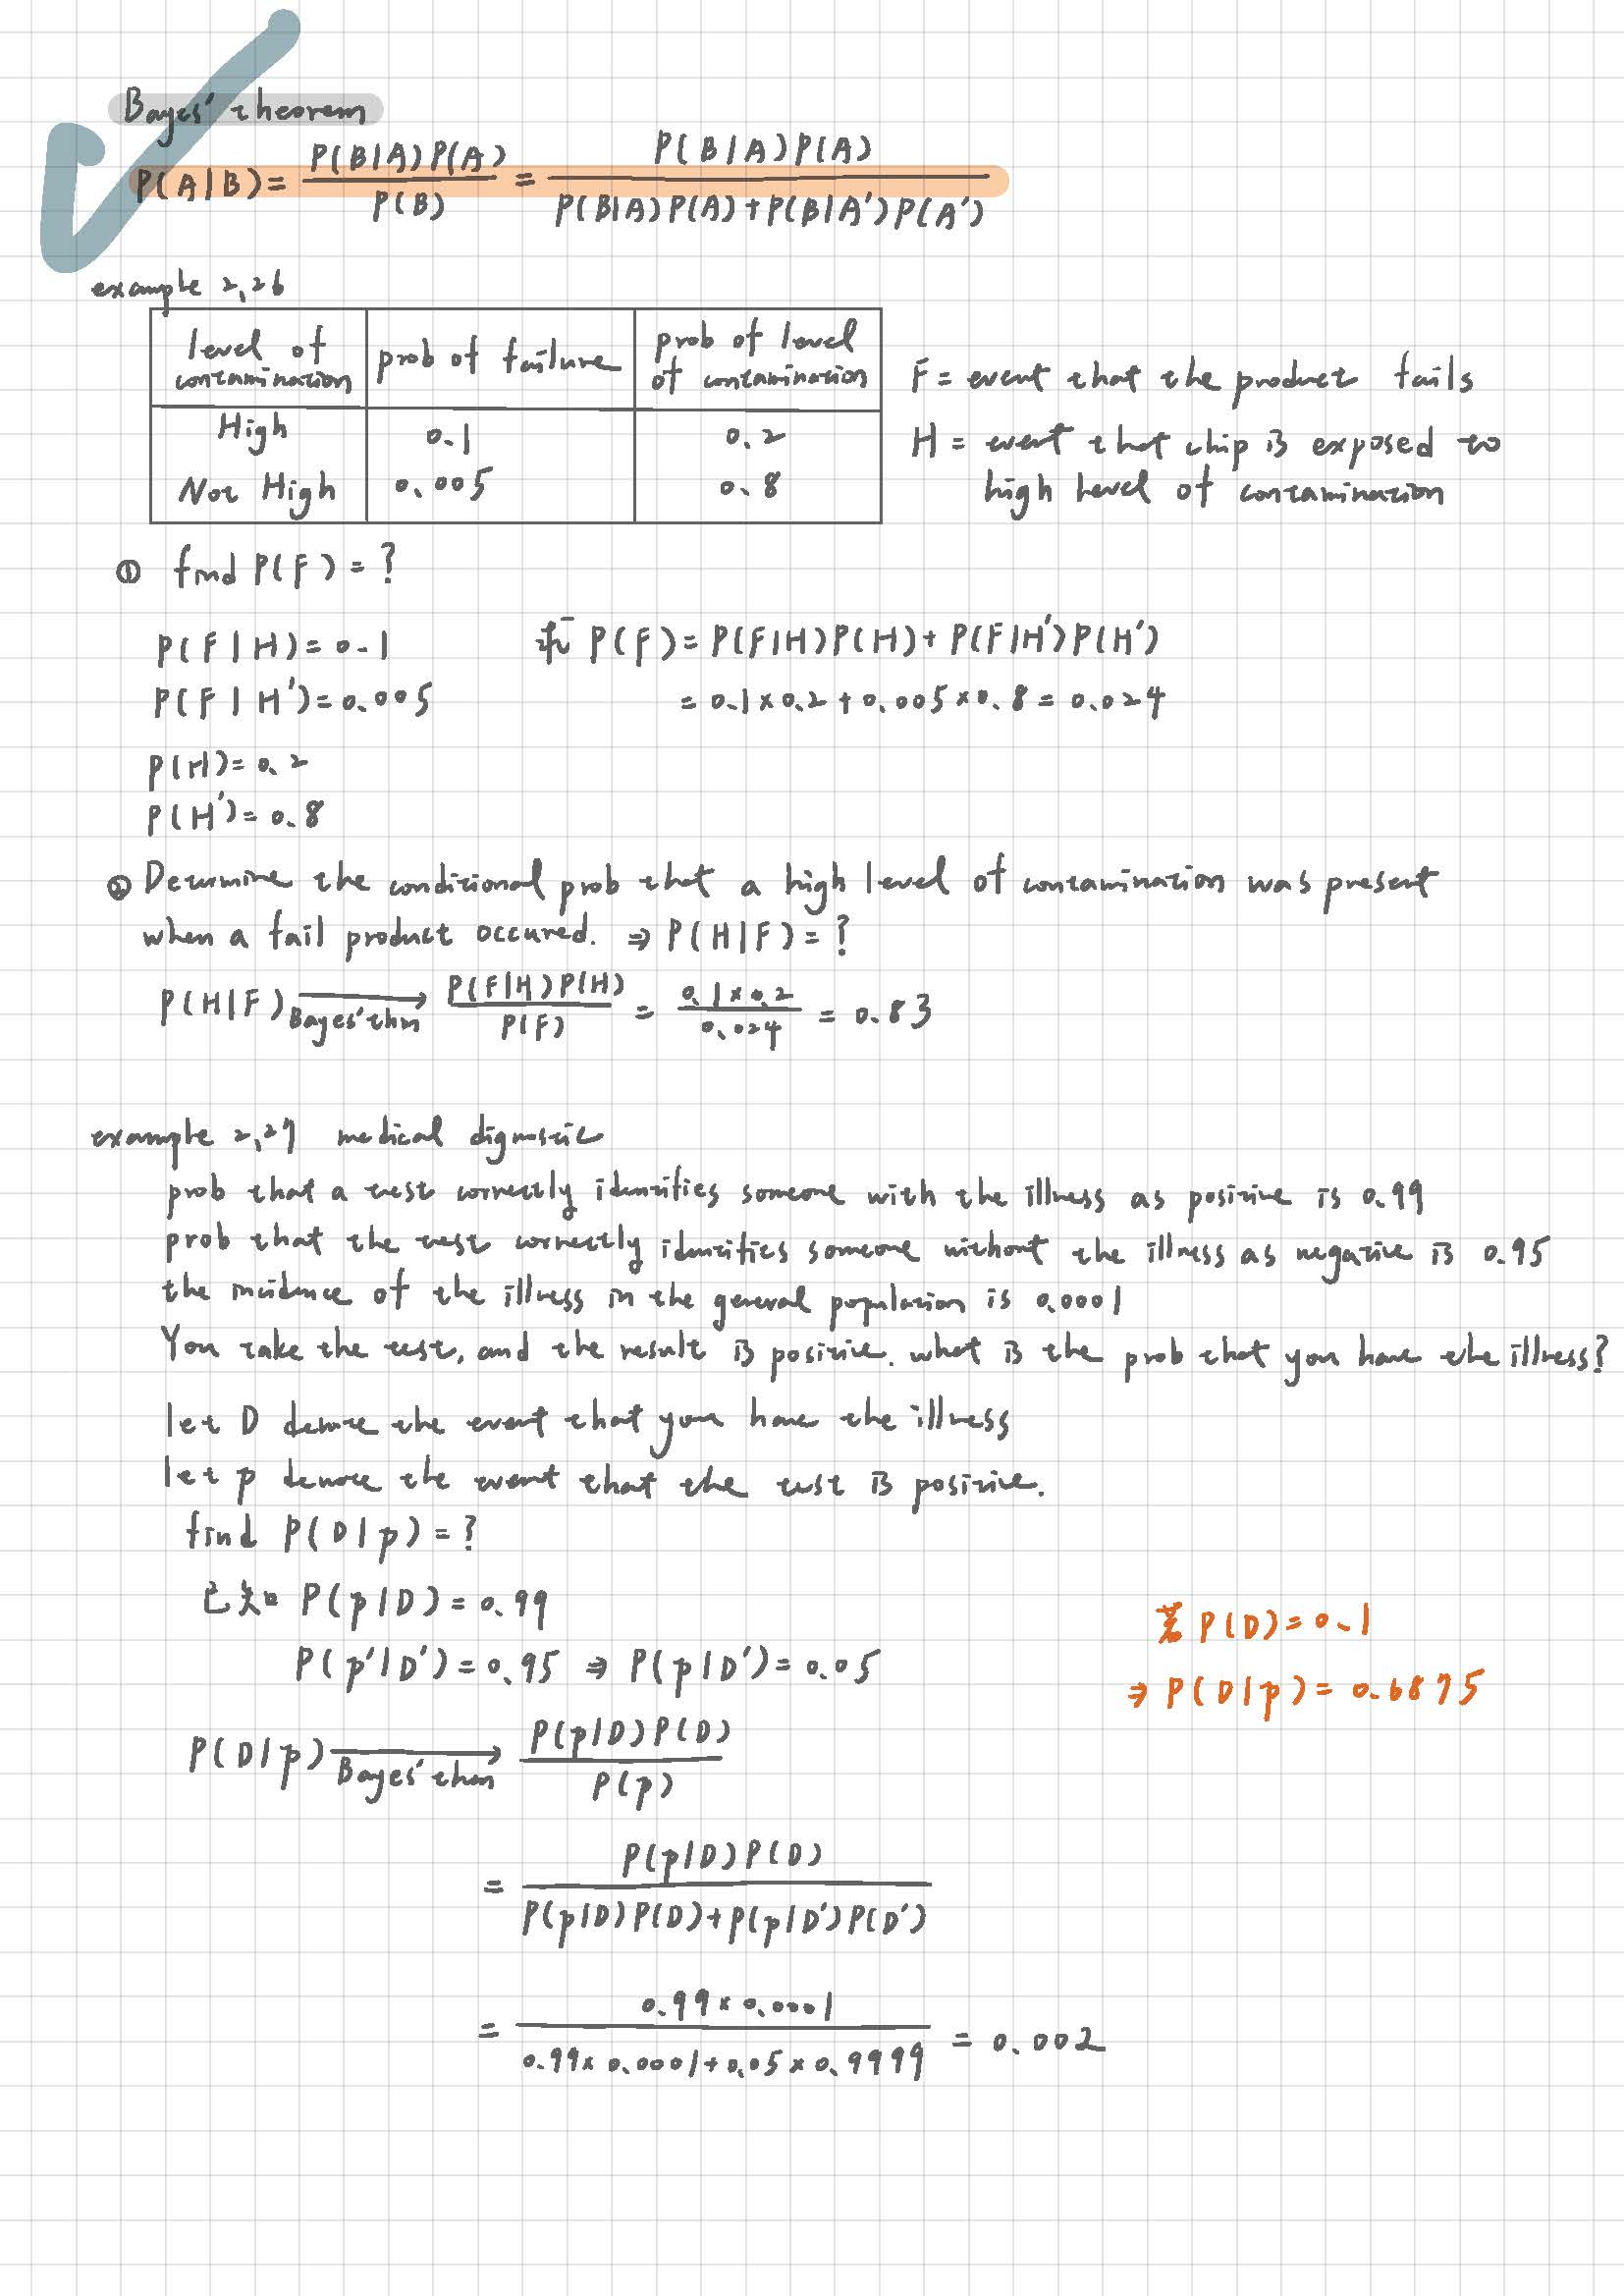 Bayes' theorem
P(A|B) = P(B|A)P(A) / P(B) = P(B|A)P(A) / P(B|A)P(A)+P(B|A')P(A')
example 2,26
level of contamination | prob of failure | prob of level of contamination
High | 0.1 | 0.2
Not High | 0.005 | 0.8
F = event that the product fails
H = event that chip is exposed to
high level of contamination
① find P(F) = ?
P(F|H) = 0.1
P(F|H') = 0.005
P(H) = 0.2
P(H') = 0.8
求 P(F) = P(F|H)P(H) + P(F|H')P(H')
= 0.1 × 0.2 + 0.005 × 0.8 = 0.024
② Determine the conditional prob that a high level of contamination was present
when a fail product occured. ⇒ P(H|F) = ?
P(H|F) → Bayes' thm P(F|H)P(H) / P(F) = 0.1 × 0.2 / 0.024 = 0.83
example 2,27 medical dignostic
prob that a test correctly identifies someone with the illness as positive is 0.99
prob that the test correctly identifies someone without the illness as negative is 0.95
the incidence of the illness in the general population is 0.0001
You take the test, and the result is positive. what is the prob that you have the illness?
let D denote the event that you have the illness
let p denote the event that the test is positive.
find P(D|p) = ?
已知 P(p|D) = 0.99
P(p'|D') = 0.95 ⇒ P(p|D') = 0.05
若 P(D) = 0.1
⇒ P(D|p) = 0.6875
P(D|p) → Bayes' thm P(p|D)P(D) / P(p)
= P(p|D)P(D) / P(p|D)P(D)+P(p|D')P(D')
= 0.99 × 0.0001 / 0.99 × 0.0001 + 0.05 × 0.9999 = 0.002